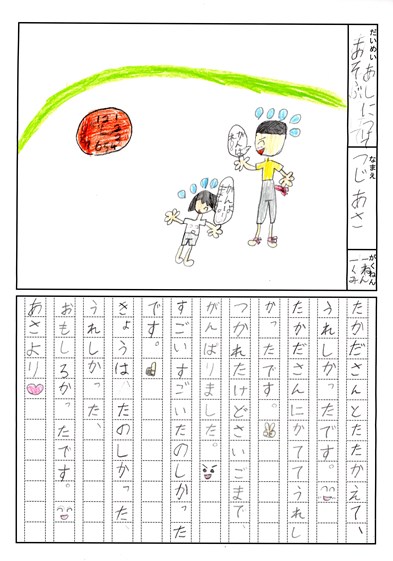 だいめい
あしにつけ
あそぶ
なまえ
つじあさ
がくねん
一ねん
一くみ
がんばれ
たかださんとたたかえて、
うれしかったです。
たかださんにかててうれし
かったです。
つかれたけどさいごまで、
がんばりました。
すごいすごいたのしかった
です。
きょうは、たのしかった、
うれしかった、
おもしろかったです。
あさより